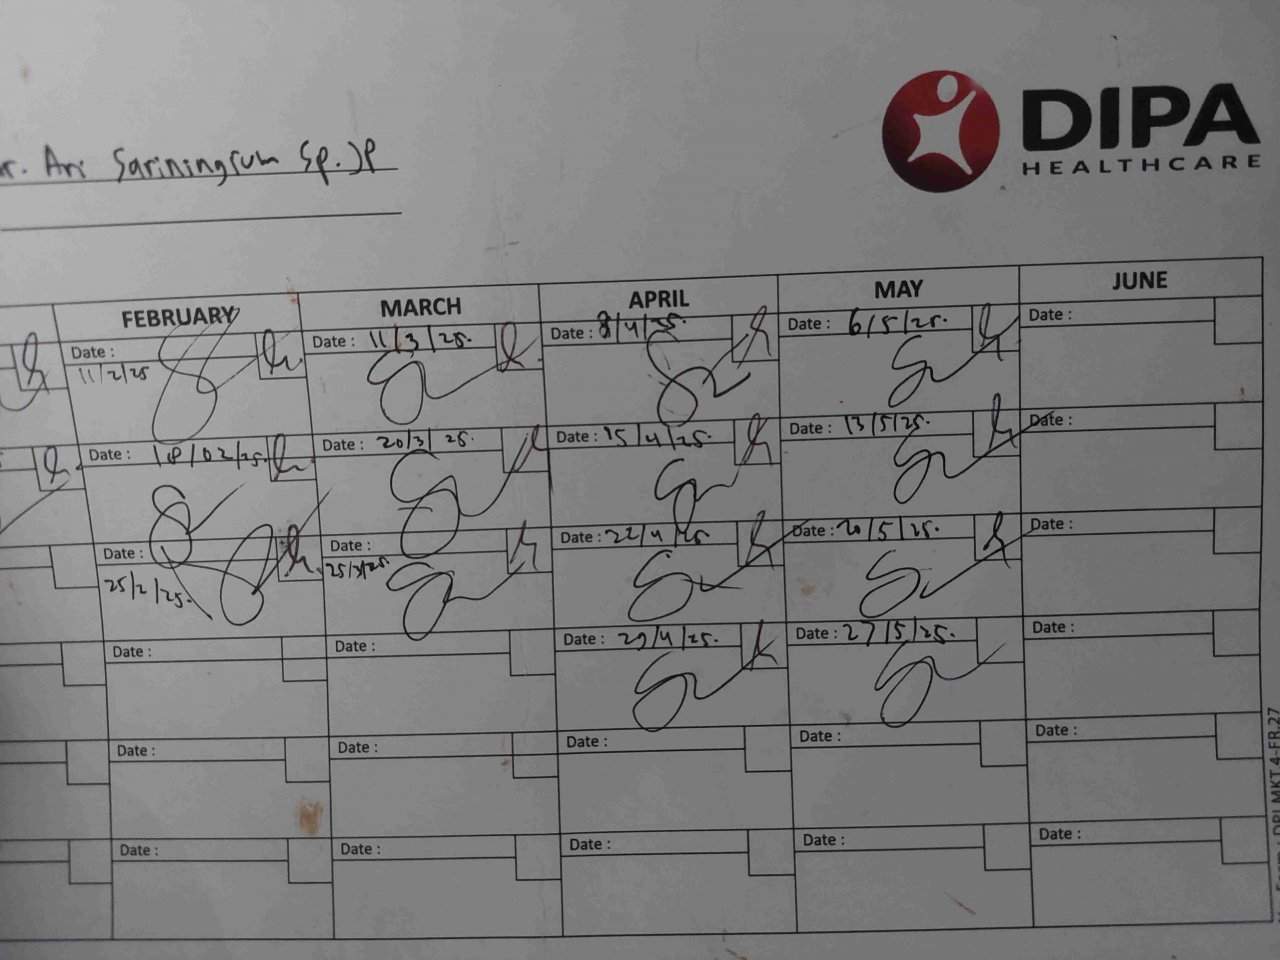 Ari Sariningrum Sp.JP
DIPA
HEALTHCARE
FEBRUARY MARCH APRIL MAY JUNE
Date : 11/2/25 Date : 11/3/25. Date : 8/4/25. Date : 6/5/25. Date :
Date : 18/02/25. Date : 20/3/25. Date : 15/4/25. Date : 13/5/25. Date :
Date : 25/2/25. Date : 25/3/25. Date : 22/4/25 Date : 20/5/25. Date :
Date : Date : Date : 29/4/25. Date : 27/5/25. Date :
Date : Date : Date : Date : Date :
Date : Date : Date : Date : Date :